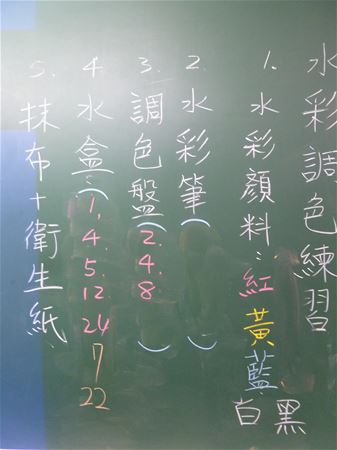 水彩調色練習
1. 水彩顏料:紅黃藍白黑
2. 水彩筆( )
3. 調色盤(2. 4. 8 )
4. 水盒:(1, 4. 5. 12. 24 7 22
5. 抹布+衛生紙